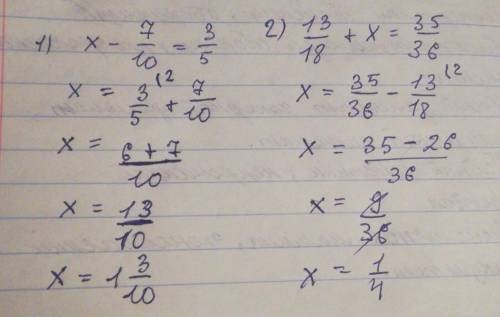 1) x - 7/10 = 3/5
x = 3/5 (2 + 7/10
x = 6 + 7/10
x = 13/10
x = 1 3/10
2) 13/18 + x = 35/36
x = 35/36 - 13/18 (2
x = 35 - 26/36
x = 9/36
x = 1/4